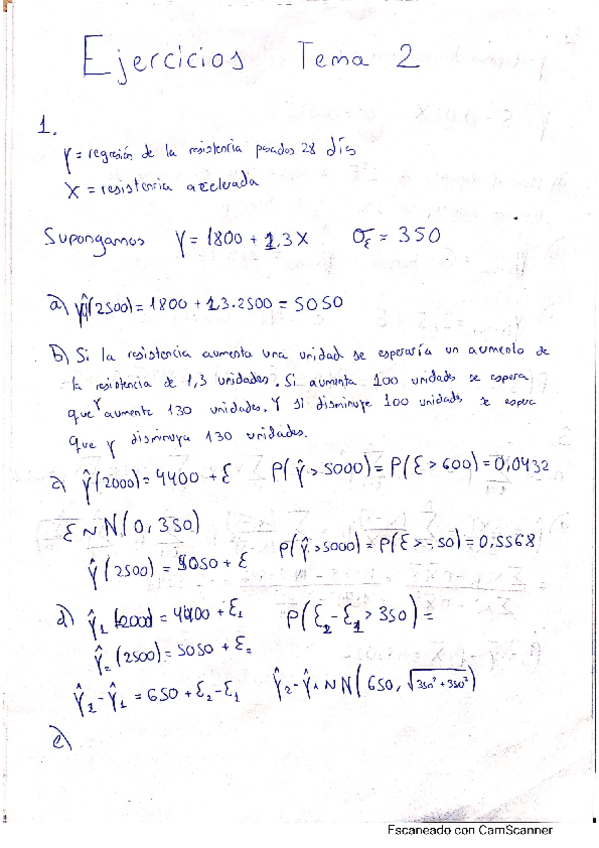 Ejercicios Tema 2
1.
Y = regresión de la resistencia pasados 28 días
X = resistencia acelerada
Supongamos Y = 1800 + 1,3X σε = 350
a) Ŷ(2500) = 1800 + 1,3·2500 = 5050
b) Si la resistencia aumenta una unidad se esperaría un aumento de
la resistencia de 1,3 unidades. Si aumenta 100 unidades se espera
que Y aumente 130 unidades. Y si disminuye 100 unidades se espera
que y disminuya 130 unidades.
Ŷ(2000) = 4400 + ε P(Ŷ > 5000) = P(ε > 600) = 0,0432
ε ~ N(0, 350)
Ŷ(2500) = 5050 + ε P(Ŷ > 5000) = P(ε > -50) = 0,5568
d) Ŷ1 (2000) = 4400 + ε1 P(ε2 - ε1 > 350) =
Ŷ2 (2500) = 5050 + ε2
Ŷ2 - Ŷ1 = 650 + ε2 - ε1 Ŷ2 - Ŷ1 ~ N(650, √350² + 350²)
e)
Escaneado con CamScanner